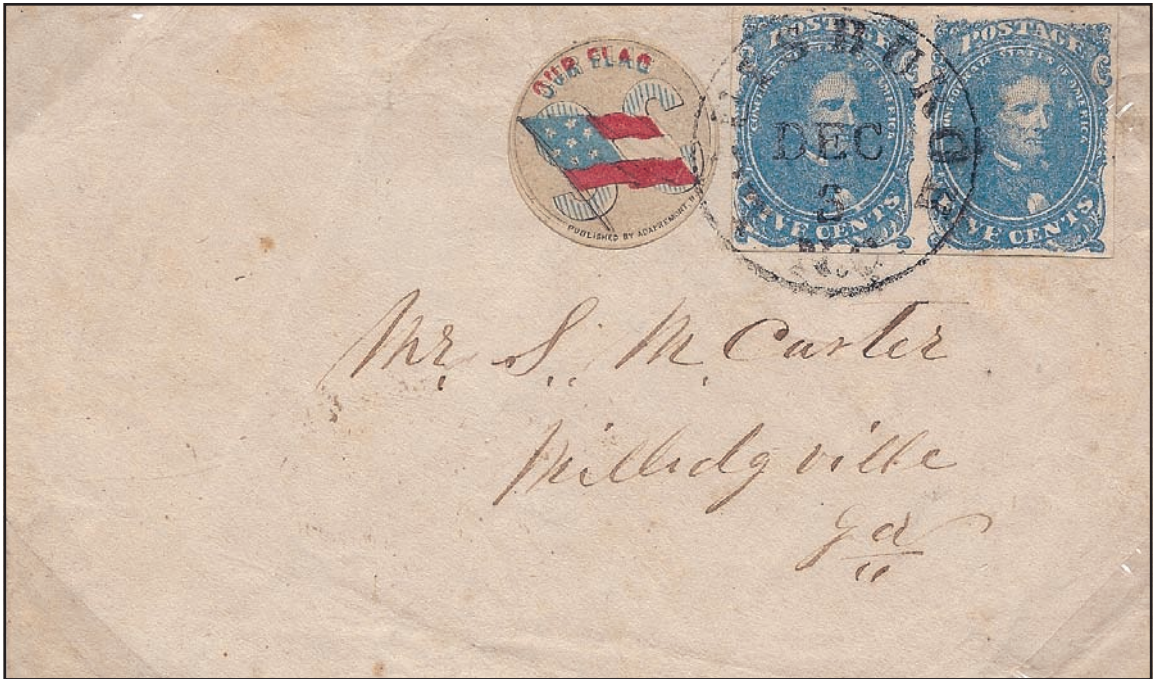 OUR FLAG
CS
PUBLISHED BY
POSTAGE
CONFEDERATE STATES OF AMERICA
FIVE CENTS
POSTAGE
CONFEDERATE STATES OF AMERICA
FIVE CENTS
DEC
3
Mr. S. M. Carter
Milledgville
Ga